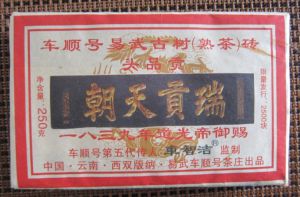 车顺号易武古树(熟茶)砖
大品贡
瑞貢天朝
净含量:250克
限量发行:2500块
一八三九年道光帝御赐
车顺号第五代传人 车智洁® 监制
中国·云南·西双版纳·易武车顺号茶庄出品